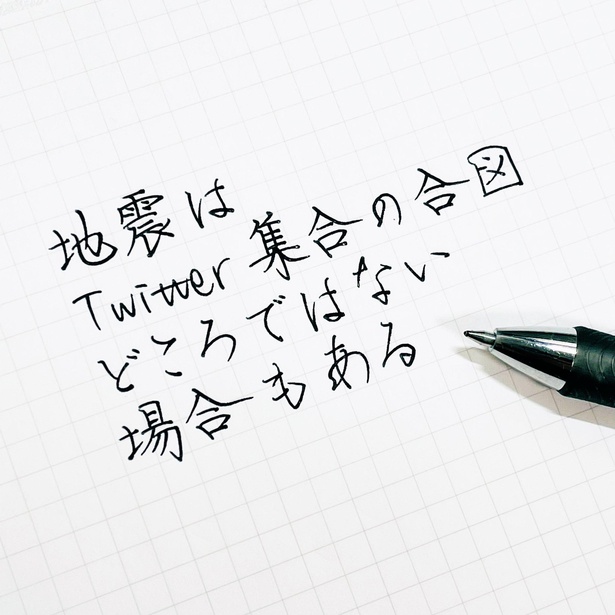 地震は
Twitter集合の合図
どころではない
場合もある